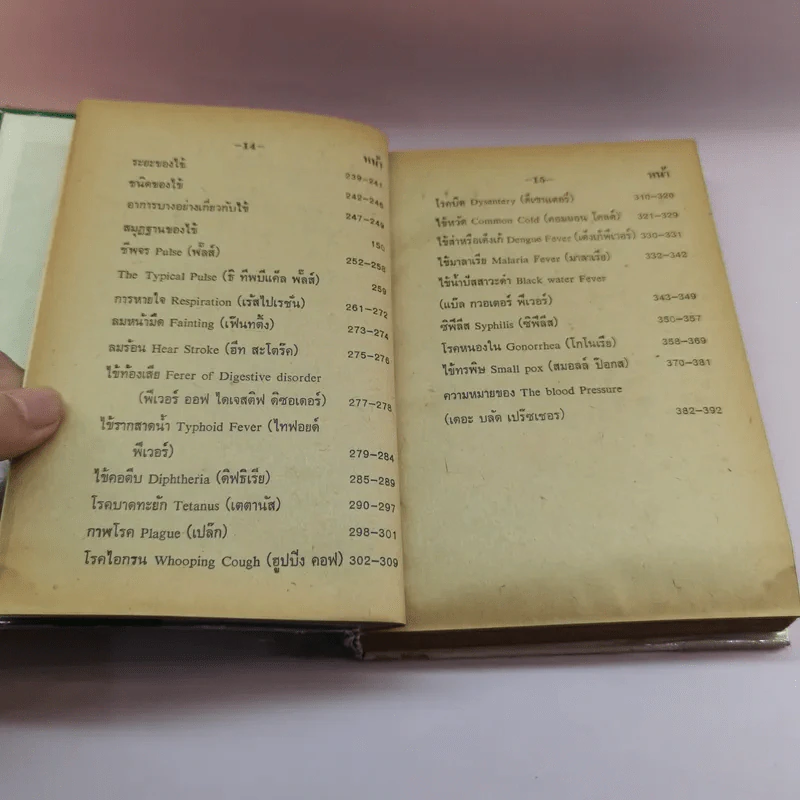 -14-
หน้า
ระยะของไข้ 239-241
ชนิดของไข้ 242-246
อาการบางอย่างเกี่ยวกับไข้ 247-249
สมุฏฐานของไข้ 150
ชีพจร Pulse (พั๊ลส์) 252-258
The Typical Pulse (ธิ ทิพบีแค็ล พั๊ลส์) 259
การหายใจ Respiration (เร๊สไปเรชั่น) 261-272
ลมหน้ามืด Fainting (เฟ๊นทติ้ง) 273-274
ลมร้อน Hear Stroke (ฮีท สะโตร๊ค) 275-276
ไข้ท้องเสีย Ferer of Digestive disorder
(พีเวอร์ ออฟ ไดเจสติฟ ดิซอเดอร์) 277-278
ไข้รากสาดน้ำ Typhoid Fever (ไทฟอยด์
พีเวอร์) 279-284
ไข้คอตีบ Diphtheria (ดิฟธิเรีย) 285-289
โรคบาดทะยัก Tetanus (เตตานัส) 290-297
กาฬโรค Plague (เปล๊ก) 298-301
โรคไอกรน Whooping Cough (ฮูปปิ่ง คอฟ) 302-309
-15-
หน้า
โรคบิด Dysentery (ดีเซาแตอร์) 310-320
ไข้หวัด Common Cold (คอมมอน โคลด์) 321-329
ไข้ส่าหรือเด็งเก้ Dengue Fever (เด็งเก้พีเวอร์) 330-331
ไข้มาลาเรีย Malaria Fever (มาลาเรีย) 332-342
ไข้น้ำปัสสาวะดำ Black water Fever
(แบ๊ล กวอเตอร์ พีเวอร์) 343-349
ซิฟิลิส Syphilis (ซิฟิลิส) 350-357
โรคหนองใน Gonorrhea (โกโนเรีย) 358-369
ไข้ทรพิษ Small pox (สมอลล์ ป๊อกส) 370-381
ความหมายของ The blood Pressure
(เดอะ บลัด เปร๊ซเชอร) 382-392